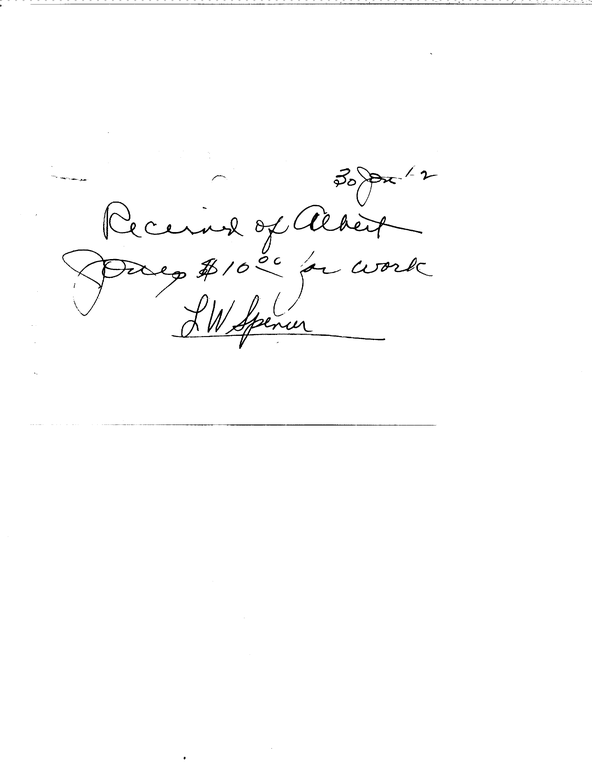 30 Jan '12
Received of Albert
Jones $10.00 for work
L W Spencer